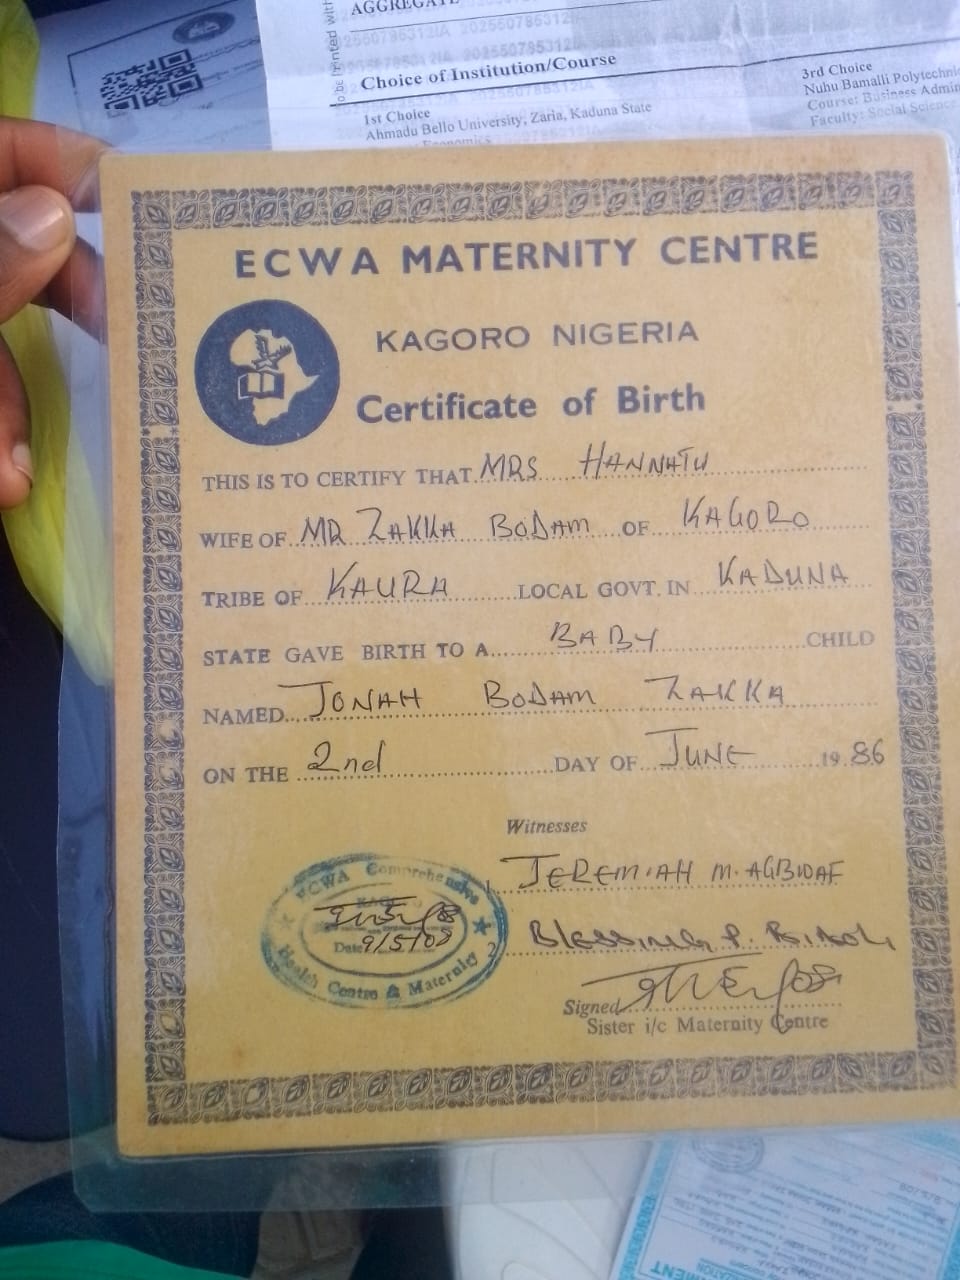 AGGREGATE
Choice of Institution/Course
1st Choice
Ahmadu Bello University, Zaria, Kaduna State
Economics
3rd Choice
Nuhu Bamalli Polytechnic
Course: Business Admin
Faculty: Social Science
ECWA MATERNITY CENTRE
KAGORO NIGERIA
Certificate of Birth
THIS IS TO CERTIFY THAT MRS HANNATU
WIFE OF MR ZAKKA BODAM OF KAGORO
TRIBE OF KAURA LOCAL GOVT. IN KADUNA
STATE GAVE BIRTH TO A BABY CHILD
NAMED JONAH BODAM ZAKKA
ON THE 2nd DAY OF JUNE 1986
Witnesses
1 JEREMIAH M.
2 BLESSING P.
Signed
Sister i/c Maternity Centre
ECWA Comprehensive
Date 9/5/08
Health Centre & Maternity